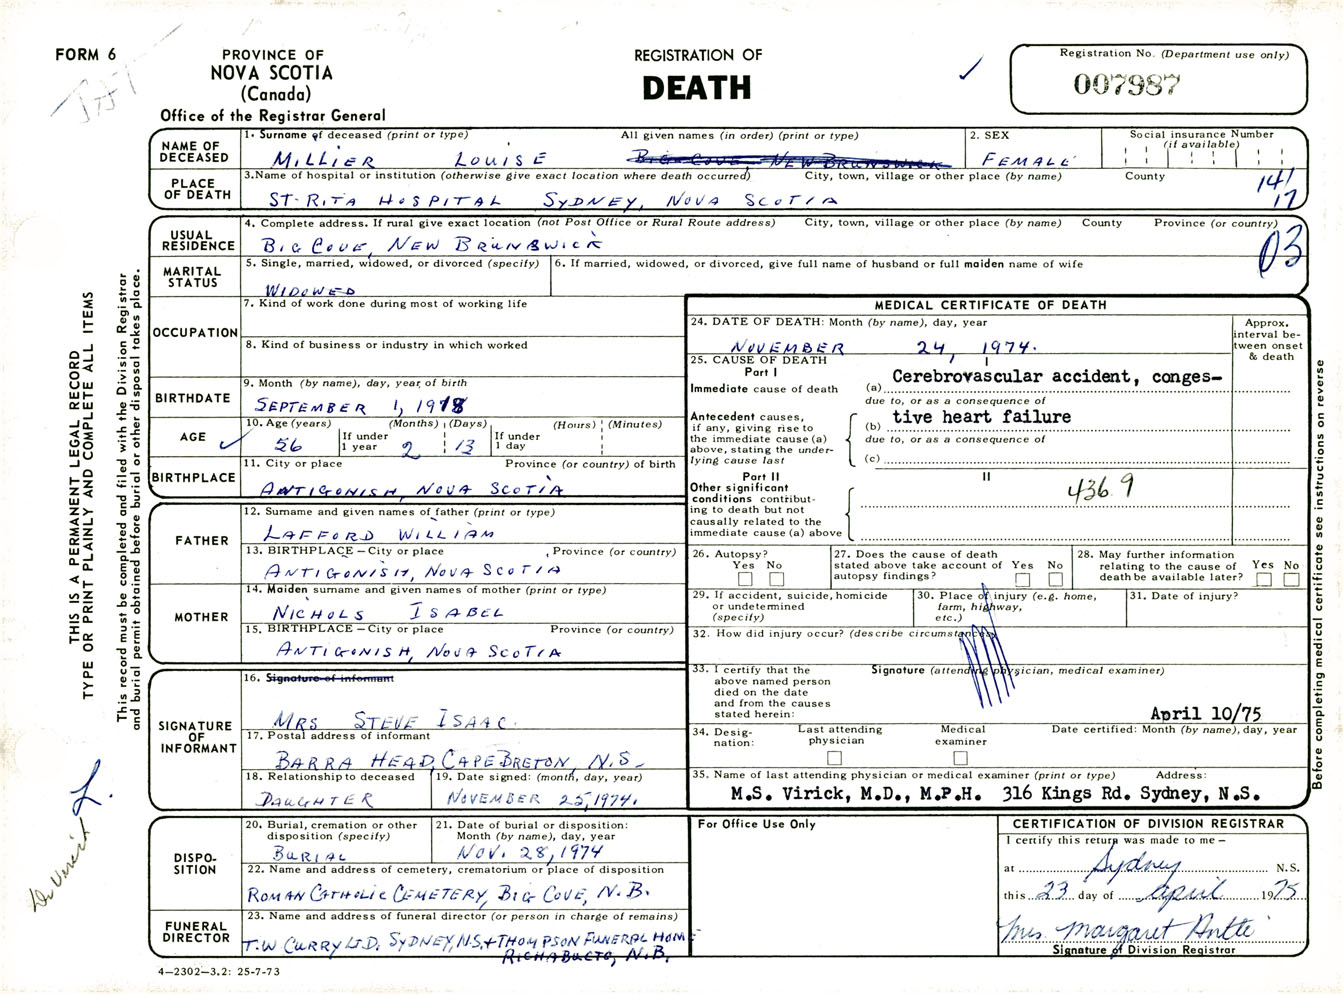 FORM 6
PROVINCE OF
NOVA SCOTIA
(Canada)
Office of the Registrar General
REGISTRATION OF
DEATH
Registration No. (Department use only)
007987
NAME OF DECEASED
1. Surname of deceased (print or type) All given names (in order) (print or type)
MILLIER LOUISE BIG COVE, NEW BRUNSWICK
2. SEX
FEMALE
Social insurance Number
(if available)
PLACE OF DEATH
3. Name of hospital or institution (otherwise give exact location where death occurred) City, town, village or other place (by name) County
ST-RITA HOSPITAL SYDNEY, NOVA SCOTIA
141
17
USUAL RESIDENCE
4. Complete address. If rural give exact location (not Post Office or Rural Route address) City, town, village or other place (by name) County Province (or country)
BIG COVE, NEW BRUNSWICK
03
MARITAL STATUS
5. Single, married, widowed, or divorced (specify)
WIDOWED
6. If married, widowed, or divorced, give full name of husband or full maiden name of wife
OCCUPATION
7. Kind of work done during most of working life
8. Kind of business or industry in which worked
BIRTHDATE
9. Month (by name), day, year of birth
SEPTEMBER 1, 1918
AGE
10. Age (years) (Months) (Days) (Hours) (Minutes)
56 If under 1 year 2 13 If under 1 day
BIRTHPLACE
11. City or place Province (or country) of birth
ANTIGONISH, NOVA SCOTIA
FATHER
12. Surname and given names of father (print or type)
LAFFORD WILLIAM
13. BIRTHPLACE – City or place Province (or country)
ANTIGONISH, NOVA SCOTIA
MOTHER
14. Maiden surname and given names of mother (print or type)
NICHOLS ISABEL
15. BIRTHPLACE – City or place Province (or country)
ANTIGONISH, NOVA SCOTIA
SIGNATURE OF INFORMANT
16. Signature of informant
MRS STEVE ISAAC.
17. Postal address of informant
BARRA HEAD, CAPE BRETON, N.S.
18. Relationship to deceased
DAUGHTER
19. Date signed: (month, day, year)
NOVEMBER 25, 1974.
DISPO-
SITION
20. Burial, cremation or other disposition (specify)
BURIAL
21. Date of burial or disposition: Month (by name), day, year
NOV. 28, 1974
22. Name and address of cemetery, crematorium or place of disposition
ROMAN CATHOLIC CEMETERY, BIG COVE, N.B.
FUNERAL DIRECTOR
23. Name and address of funeral director (or person in charge of remains)
T.W CURRY LTD. SYDNEY, N.S. + THOMPSON FUNERAL HOME
RICHABUCTO, N.B.
MEDICAL CERTIFICATE OF DEATH
24. DATE OF DEATH: Month (by name), day, year
NOVEMBER 24, 1974.
Approx.
interval be-
tween onset
& death
25. CAUSE OF DEATH
Part I
Immediate cause of death (a) Cerebrovascular accident, conges-
due to, or as a consequence of
Antecedent causes,
if any, giving rise to
the immediate cause (a)
above, stating the under-
lying cause last
(b) tive heart failure
due to, or as a consequence of
(c)
Part II
Other significant
conditions contribut-
ing to death but not
causally related to the
immediate cause (a) above
II
436.9
26. Autopsy?
Yes No
27. Does the cause of death
stated above take account of
autopsy findings?
Yes No
28. May further information
relating to the cause of
death be available later?
Yes No
29. If accident, suicide, homicide
or undetermined
(specify)
30. Place of injury (e.g. home,
farm, highway,
etc.)
31. Date of injury?
32. How did injury occur? (describe circumstances)
33. I certify that the
above named person
died on the date
and from the causes
stated herein:
Signature (attending physician, medical examiner)
April 10/75
34. Desig-
nation:
Last attending
physician
Medical
examiner
Date certified: Month (by name), day, year
35. Name of last attending physician or medical examiner (print or type) Address:
M.S. Virick, M.D., M.P.H. 316 Kings Rd. Sydney, N.S.
For Office Use Only
CERTIFICATION OF DIVISION REGISTRAR
I certify this return was made to me –
at Sydney N.S.
this 23 day of April 1975
Mrs. Margaret
Signature of Division Registrar
THIS IS A PERMANENT LEGAL RECORD
TYPE OR PRINT PLAINLY AND COMPLETE ALL ITEMS
This record must be completed and filed with the Division Registrar
and burial permit obtained before burial or other disposal takes place.
Before completing medical certificate see instructions on reverse
Dr Virick
L.
4–2302–3.2: 25-7-73